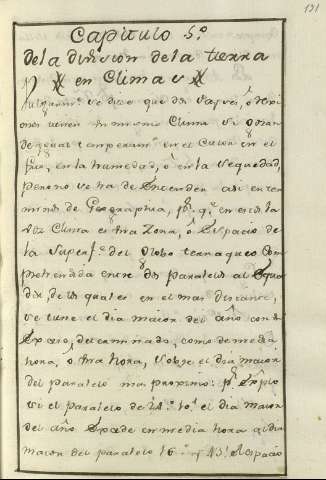 131
Capitulo 5.º
de la division de la tierra
en Climas
Vulgarm.te se dice que dos Payses, ó Regi
ones tienen un mismo Clima si gozan
de igual temperam.to en el Calor en el
frio, en la humedad, ó en la sequedad,
pero no se ha de Entender asi en ter
minos de Geographia, p.s q.e en esta la
voz Clima es una Zona, ó Espacio de
la Superf.e del Globo terraqueo Com
prehendida entre dos paralelos al Equa
dor de los quales en el mas distante,
se tiene el dia maior del año con
Exceso, determinado, como de media
hora, ó una hora, sobre el dia maior
del paralelo mas proximo: p.r Exemplo
si el paralelo de el dia maior
del año Excede en media hora al dia
maior del paralelo 16.º y el espacio